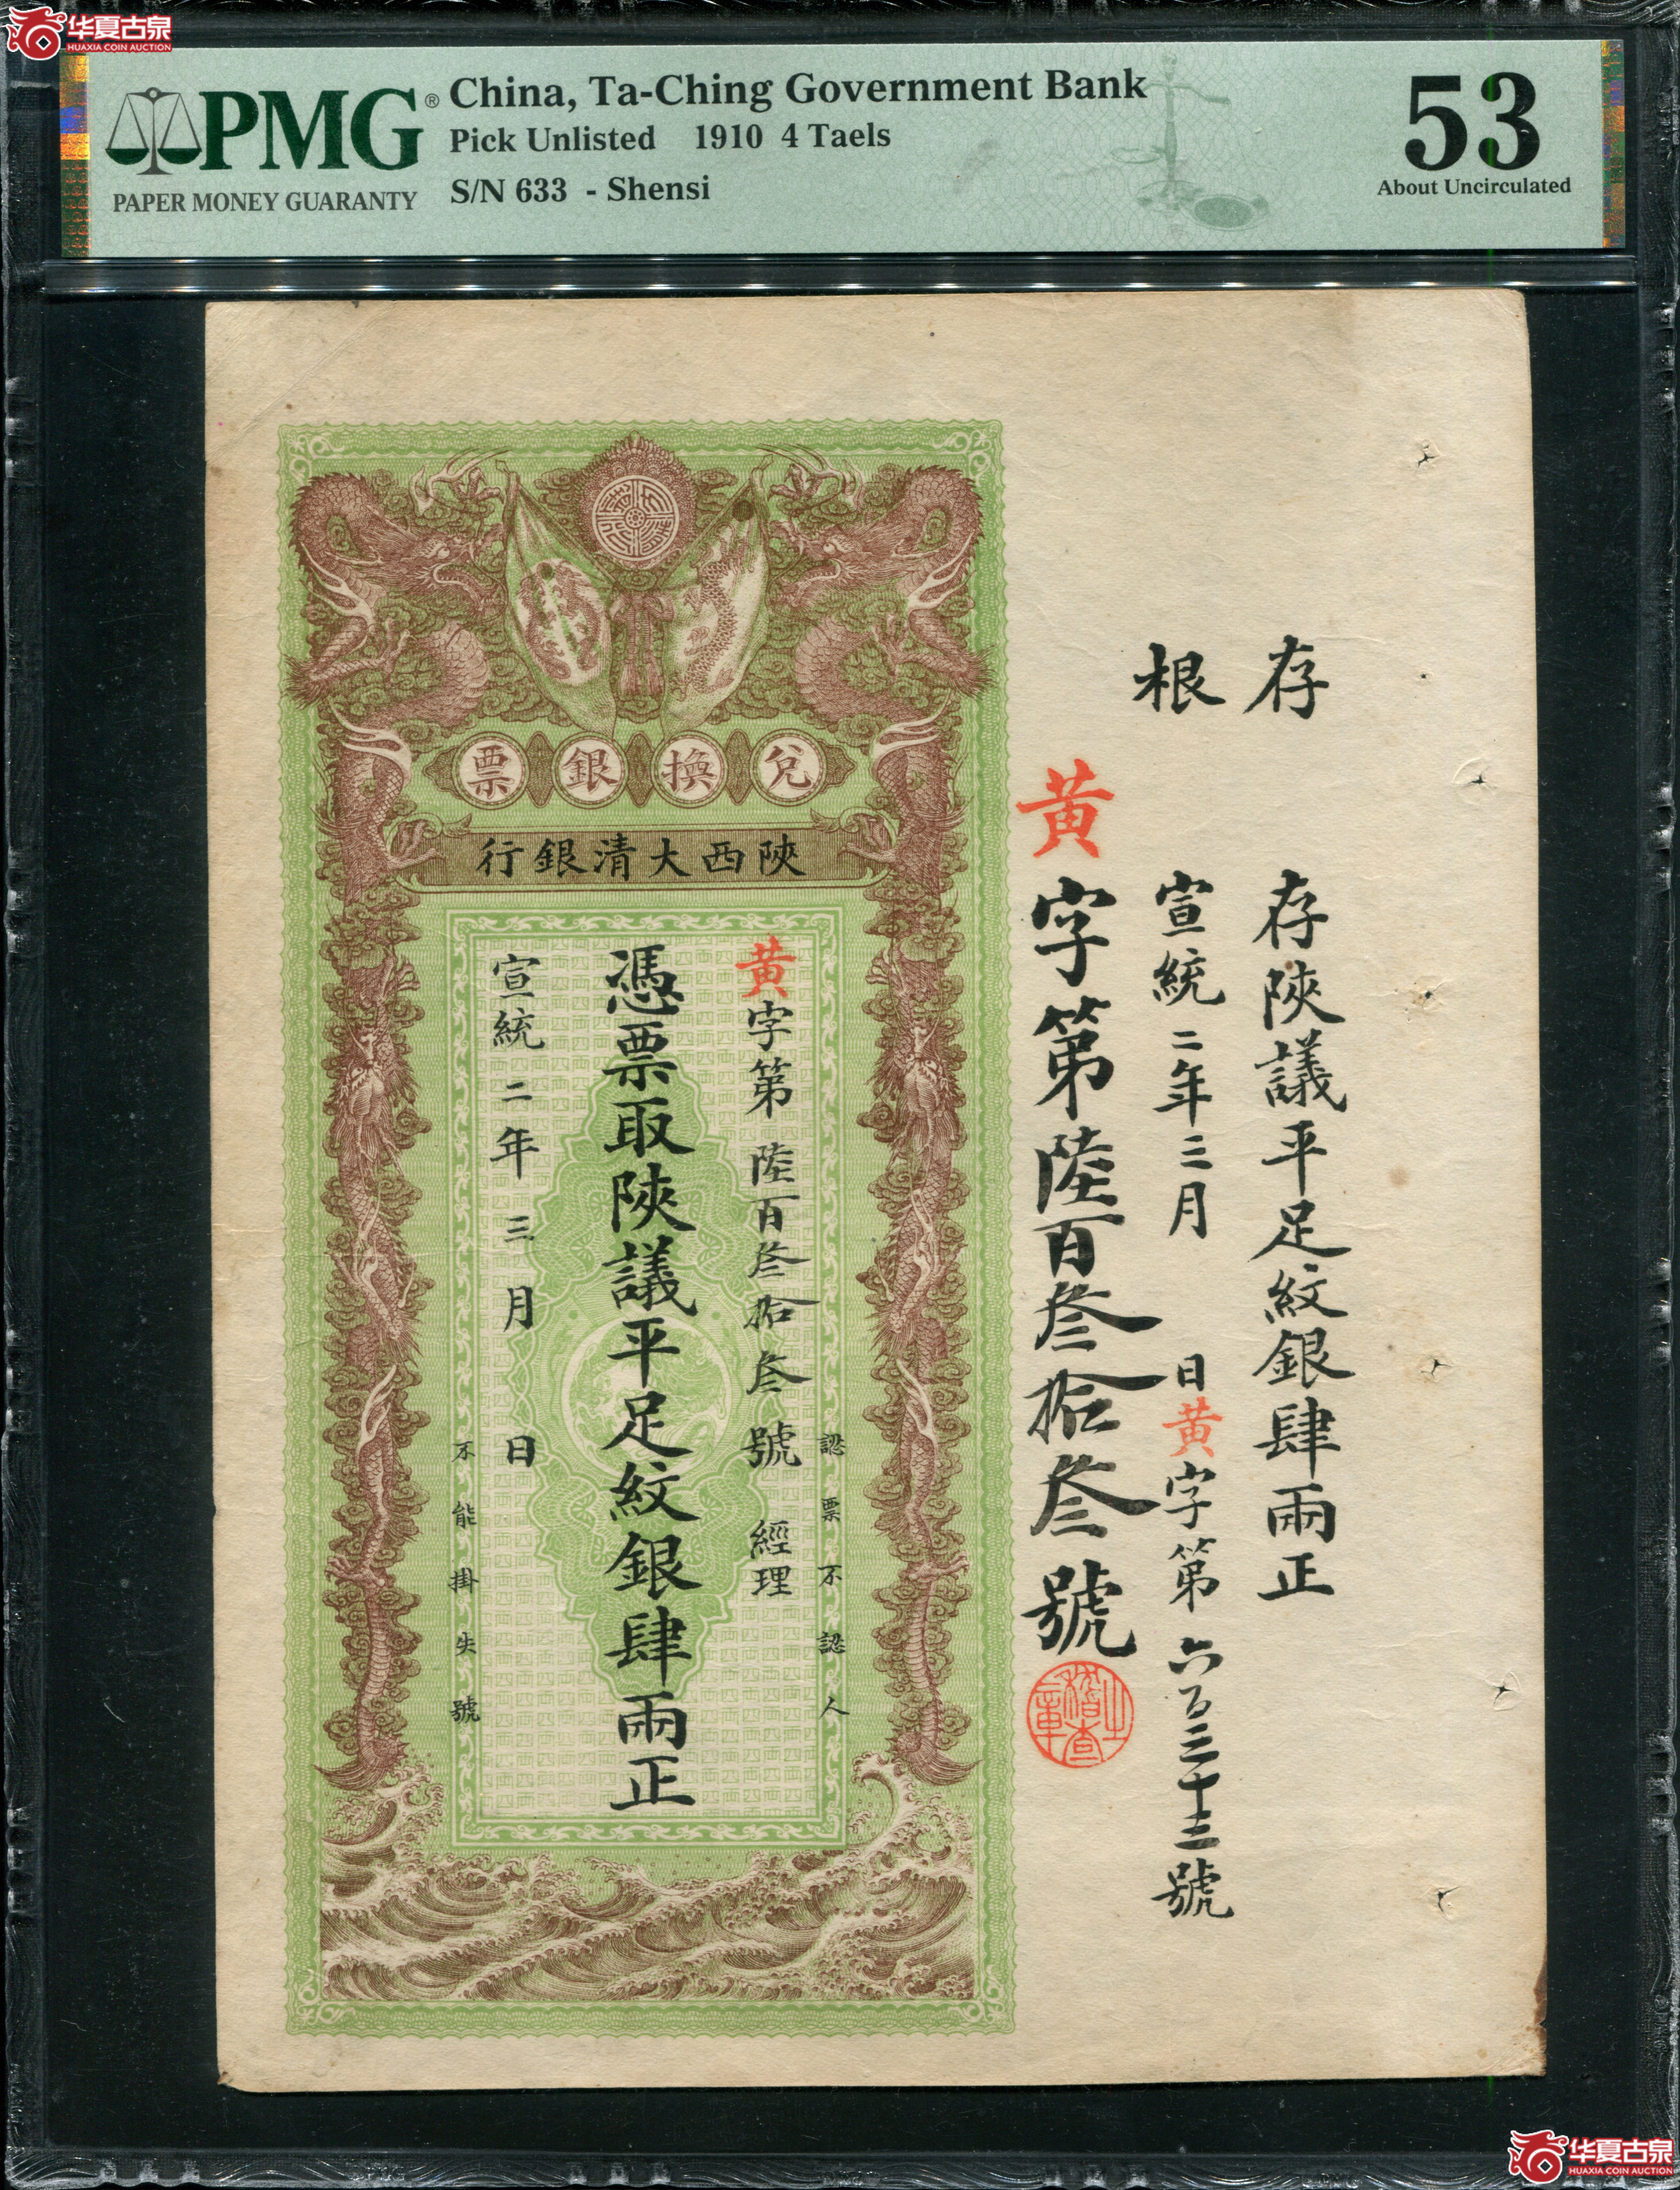 华夏古泉
HUAXIA COIN AUCTION
PMG®
PAPER MONEY GUARANTY
China, Ta-Ching Government Bank
Pick Unlisted 1910 4 Taels
S/N 633 - Shensi
53
About Uncirculated
存根
存陝議平足紋銀肆兩正
宣統二年三月 日黃字第六百三十三號
黃字第陸百叁拾叁號
稽查之章
兌換銀票
陝西大清銀行
認票不認人
黃字第陸百叁拾叁號 經理
憑票取陝議平足紋銀肆兩正
宣統二年三月 日
不能掛失號
华夏古泉
HUAXIA COIN AUCTION